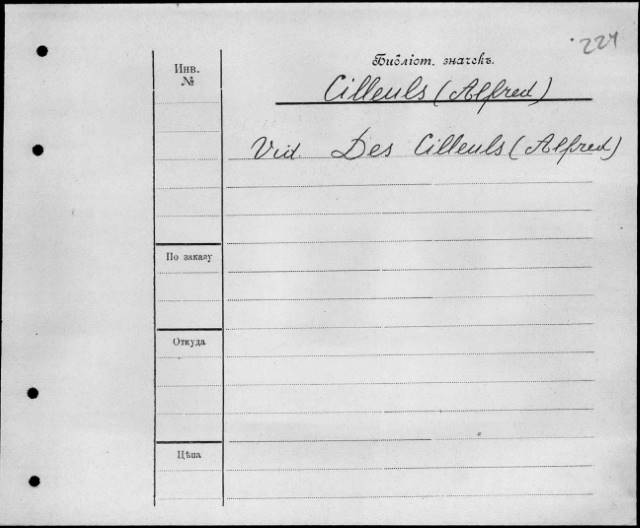 227
Библіот. значекъ.
Инв.
№
Cilleuls (Alfred)
Vid. Des Cilleuls (Alfred)
По заказу
Откуда
Цѣна